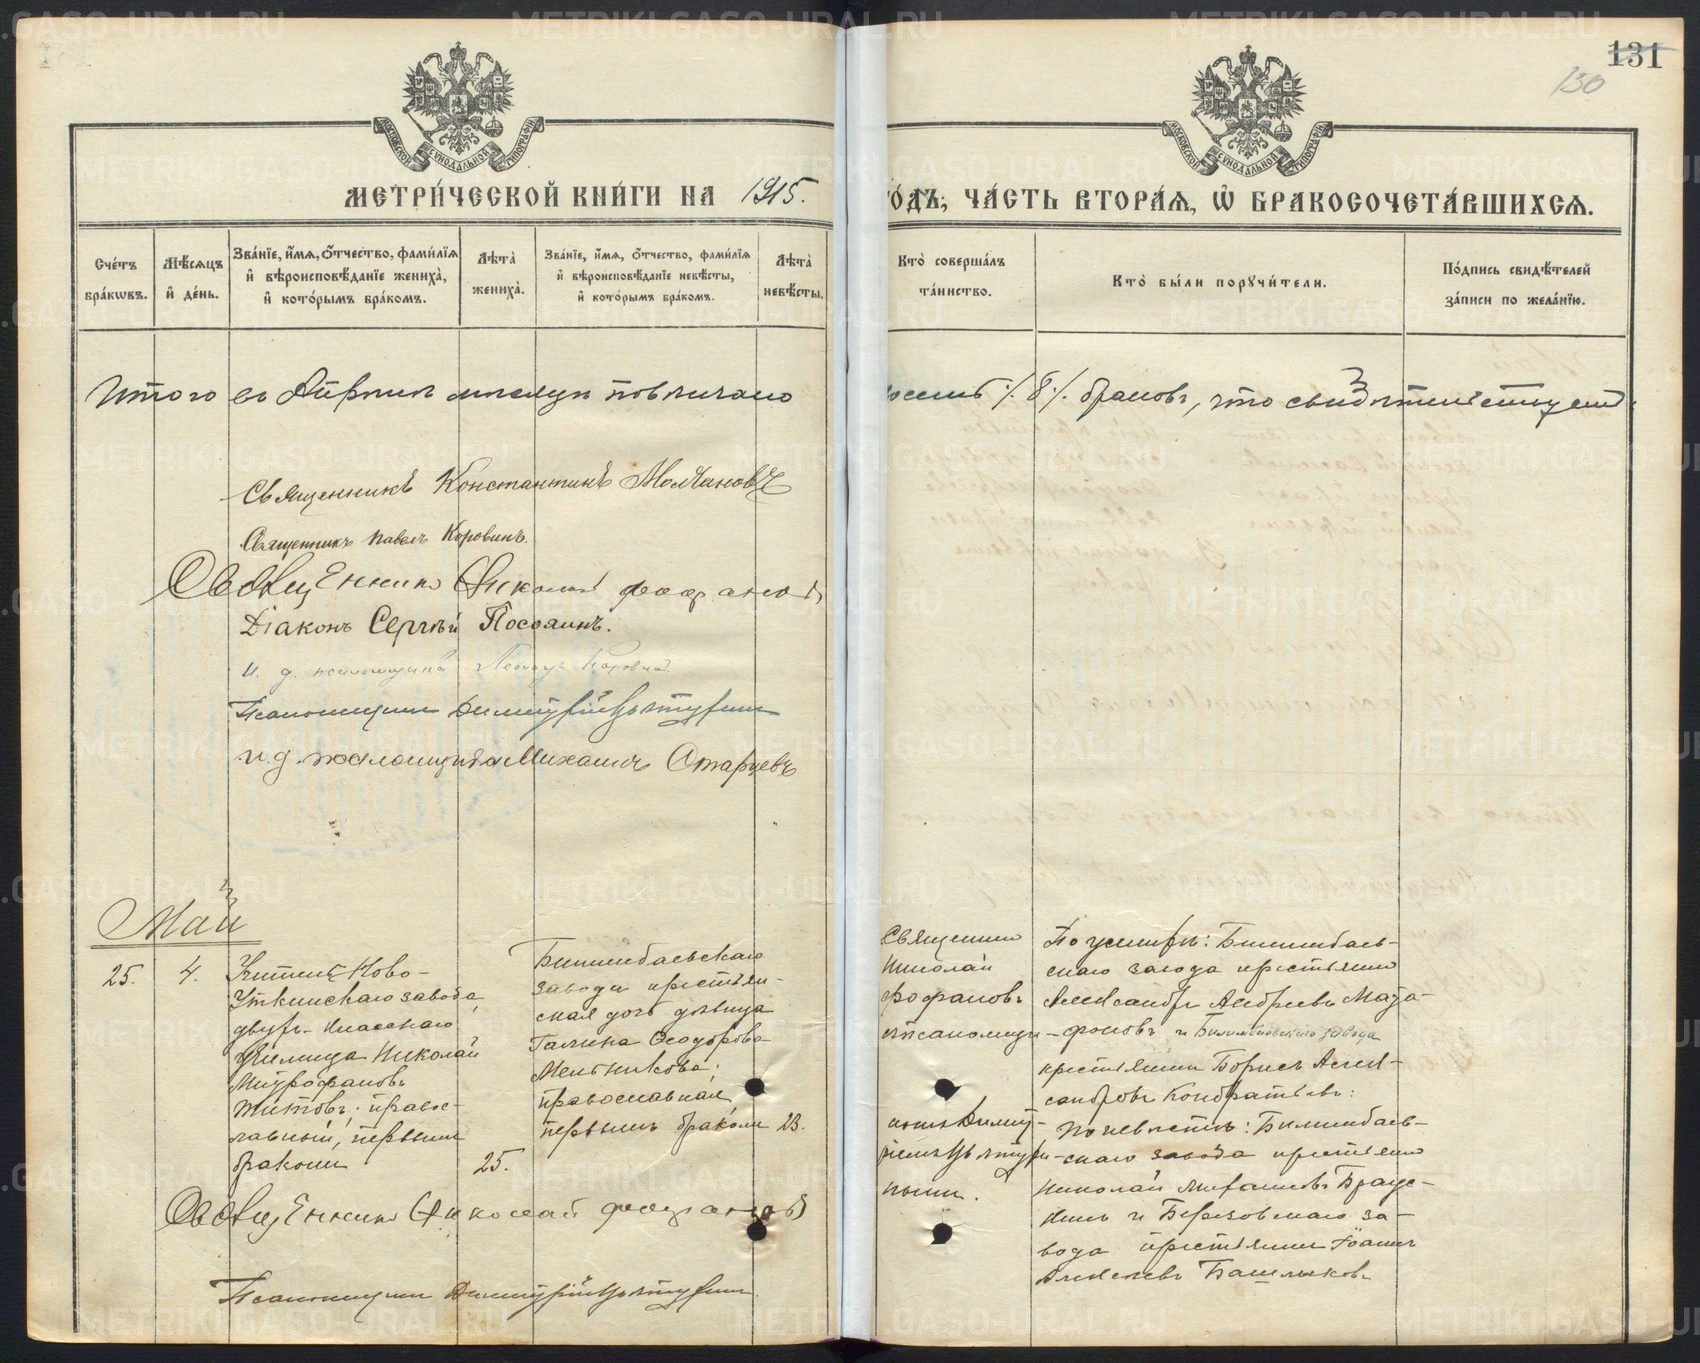 131
130
МОСКОВСКОЙ СѴНОДАЛЬНОЙ ТИПОГРАФІИ
МОСКОВСКОЙ СѴНОДАЛЬНОЙ ТИПОГРАФІИ
МЕТРИ́ЧЕСКОЙ КНИ́ГИ НА 1915.
ГО́ДЪ, ЧА́СТЬ ВТОРА́Я, Ѽ БРАКОСОЧЕТА́ВШИХСЯ.
Сче́тъ бра́кѡвъ.
Мѣ́сяцъ и҆ де́нь.
Зва́нїе, и҆́мя, ѻ҆́тчество, фами́лїя и҆ вѣроисповѣ́данїе жениха̀, и҆ кото́рымъ бра́комъ.
Лѣта̀ жениха̀.
Зва́нїе, и҆́мя, ѻ҆́тчество, фами́лїя и҆ вѣроисповѣ́данїе невѣ́сты, и҆ кото́рымъ бра́комъ.
Лѣта̀ невѣ́сты.
Кто̀ соверша́лъ та́инство.
Кто̀ бы́ли порꙋчи́тели.
По́дпись свидѣ́телей за́писи по жела́нїю.
Итого въ Апрѣлѣ мѣсяцѣ повѣнчано
восемь /.8./ браковъ, что свидѣтельствуемъ:
Священникъ Константинъ Молчановъ
Священникъ Павелъ Коровинъ.
Священникъ Николай Фофановъ
Діаконъ Сергѣй
и. д. псаломщика Леонидъ Коровин
Псаломщикъ Димитрій
и. д. псаломщика Михаилъ Старцевъ
Май
25.
4.
Учитель Ново-
Уткинскаго завода
двухъ-класснаго
училища Николай
Митрофановъ
Титовъ; правос-
лавный, первымъ
бракомъ
25.
Билимбаевскаго
завода крестьян-
ская дочь дѣвица
Галина Ѳеодорова
Мельникова;
православная,
первымъ бракомъ
23.
Священник
Николай
Фофановъ
съ псаломщи-
комъ Димит-
ріемъ
Священникъ Николай Фофановъ
Псаломщикъ Димитрій
По женихѣ: Билимбаев-
скаго завода крестьянин
Александръ Андреевъ Мата-
фоновъ и Билимбаевскаго завода
крестьянинъ Борисъ Алек-
сандровъ Кондратьевъ:
По невѣстѣ: Билимбаев-
скаго завода крестьянин
Николай
и Березовскаго за-
вода крестьянинъ Іоаннъ
Алексѣевъ Башлыковъ
METRIKI.GASO-URAL.RU